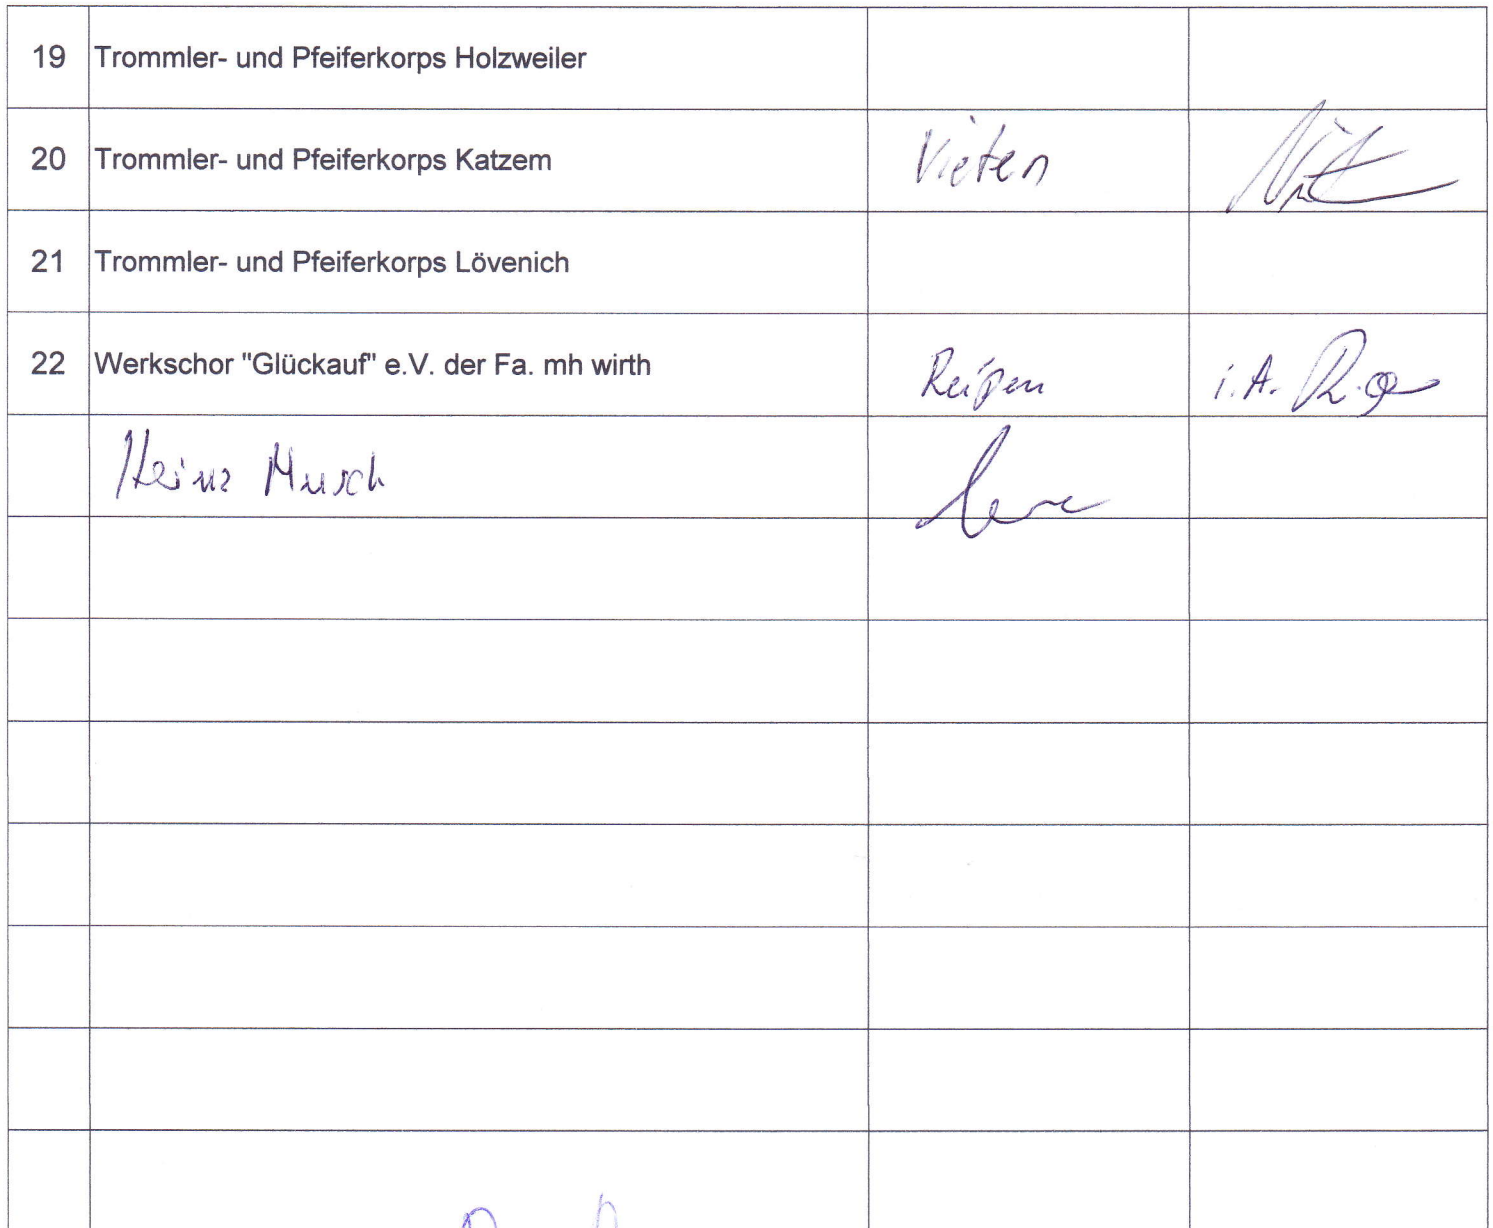 19 Trommler- und Pfeiferkorps Holzweiler
20 Trommler- und Pfeiferkorps Katzem Vieten
21 Trommler- und Pfeiferkorps Lövenich
22 Werkschor "Glückauf" e.V. der Fa. mh wirth Reipen i.A.
Heinz Musch